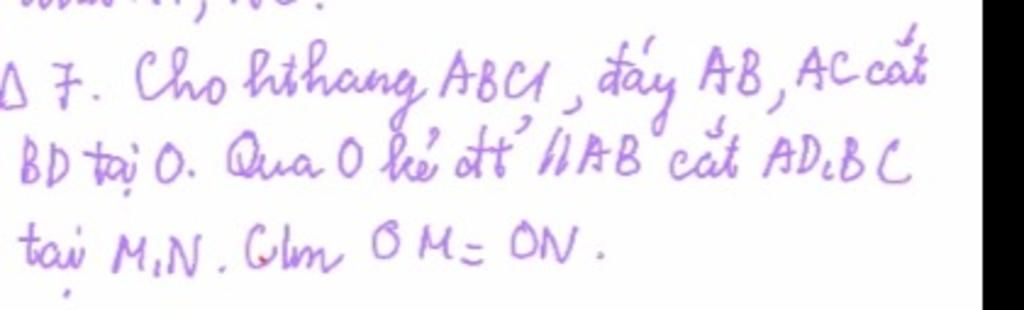 Δ 7. Cho hthang ABCD, đáy AB, AC cắt
BD tại O. Qua O kẻ đt // AB cắt AD, BC
tại M, N. Clm OM = ON.